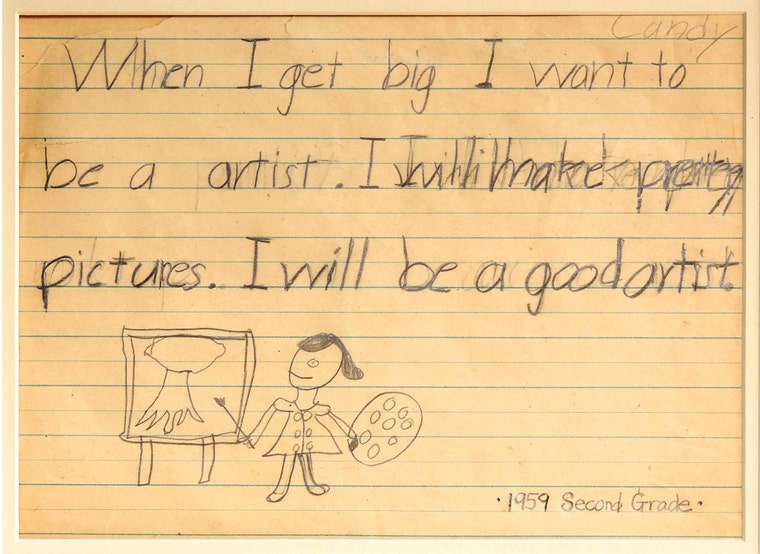 Candy
When I get big I want to
be a artist. I will make pretty
pictures. I will be a good artist.
· 1959 Second Grade ·